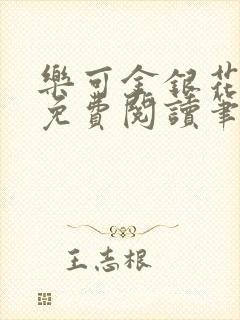 樂可金銀花
免費閱讀筆
王志根